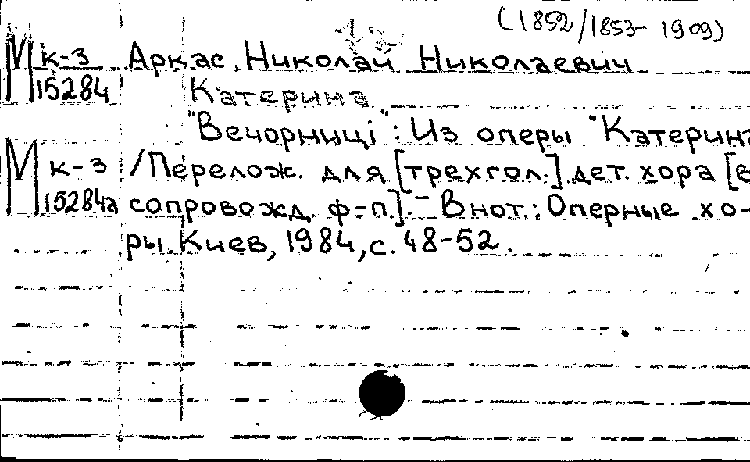 (1852/1853-1909)
М к-3 Аркас, Николай Николаевич
15284 Катерина
"Вечорниці": Из оперы "Катерина
М к-3 /Перелож. для [трехгол.] дет. хора [в
15284а сопровожд. ф-п.].- В нот.: Оперные хо-
ры. Киев, 1984, с. 48-52.